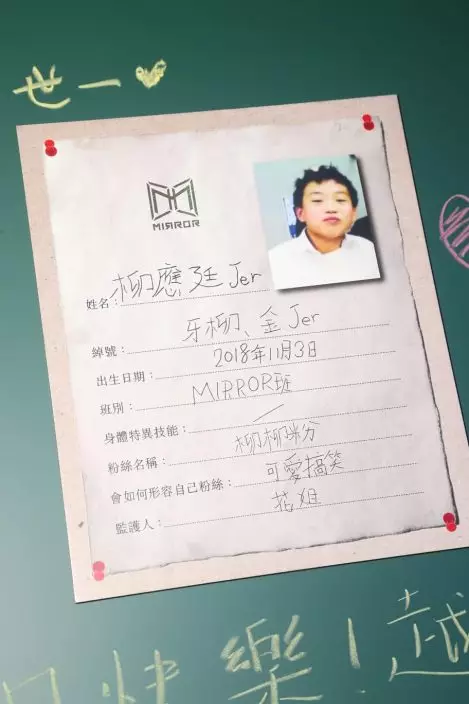 世一
MIRROR
姓名：柳應廷 Jer
綽號：牙柳、金 Jer
出生日期：2018年11月3日
班別：MIRROR班
身體特異技能：／
粉絲名稱：柳柳粉
會如何形容自己粉絲：可愛搞笑
監護人：花姐
快樂！越